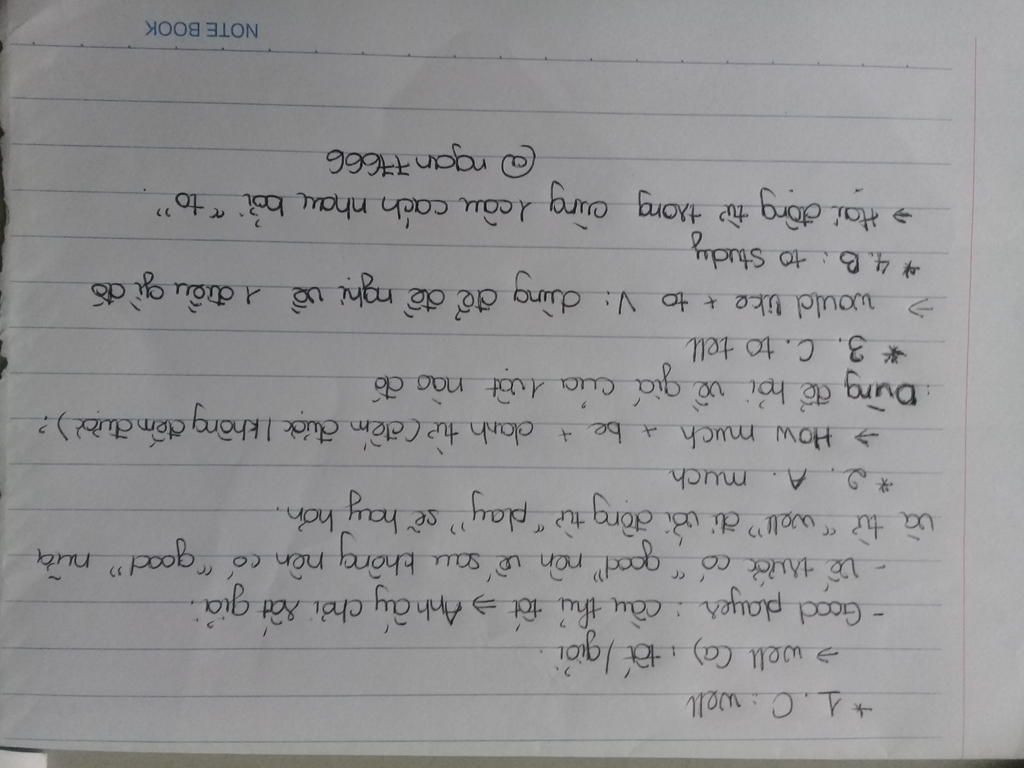 * 1. C : well
→ well (a) : tốt / giỏi.
- Good player : cầu thủ tốt → Anh ấy chơi rất giỏi.
- Vế trước có "good" nên vế sau không nên có "good" nữa
và từ "well" đi với động từ "play" sẽ hay hơn.
* 2. A. much
→ How much + be + danh từ (đếm được / không đếm được)?
: Dùng để hỏi về giá của 1 vật nào đó
* 3. C. to tell
→ would like + to V : dùng để đề nghị về 1 điều gì đó
* 4. B : to study
→ Hai động từ trong cùng 1 câu cách nhau bởi "to".
@ ngan77666
NOTE BOOK